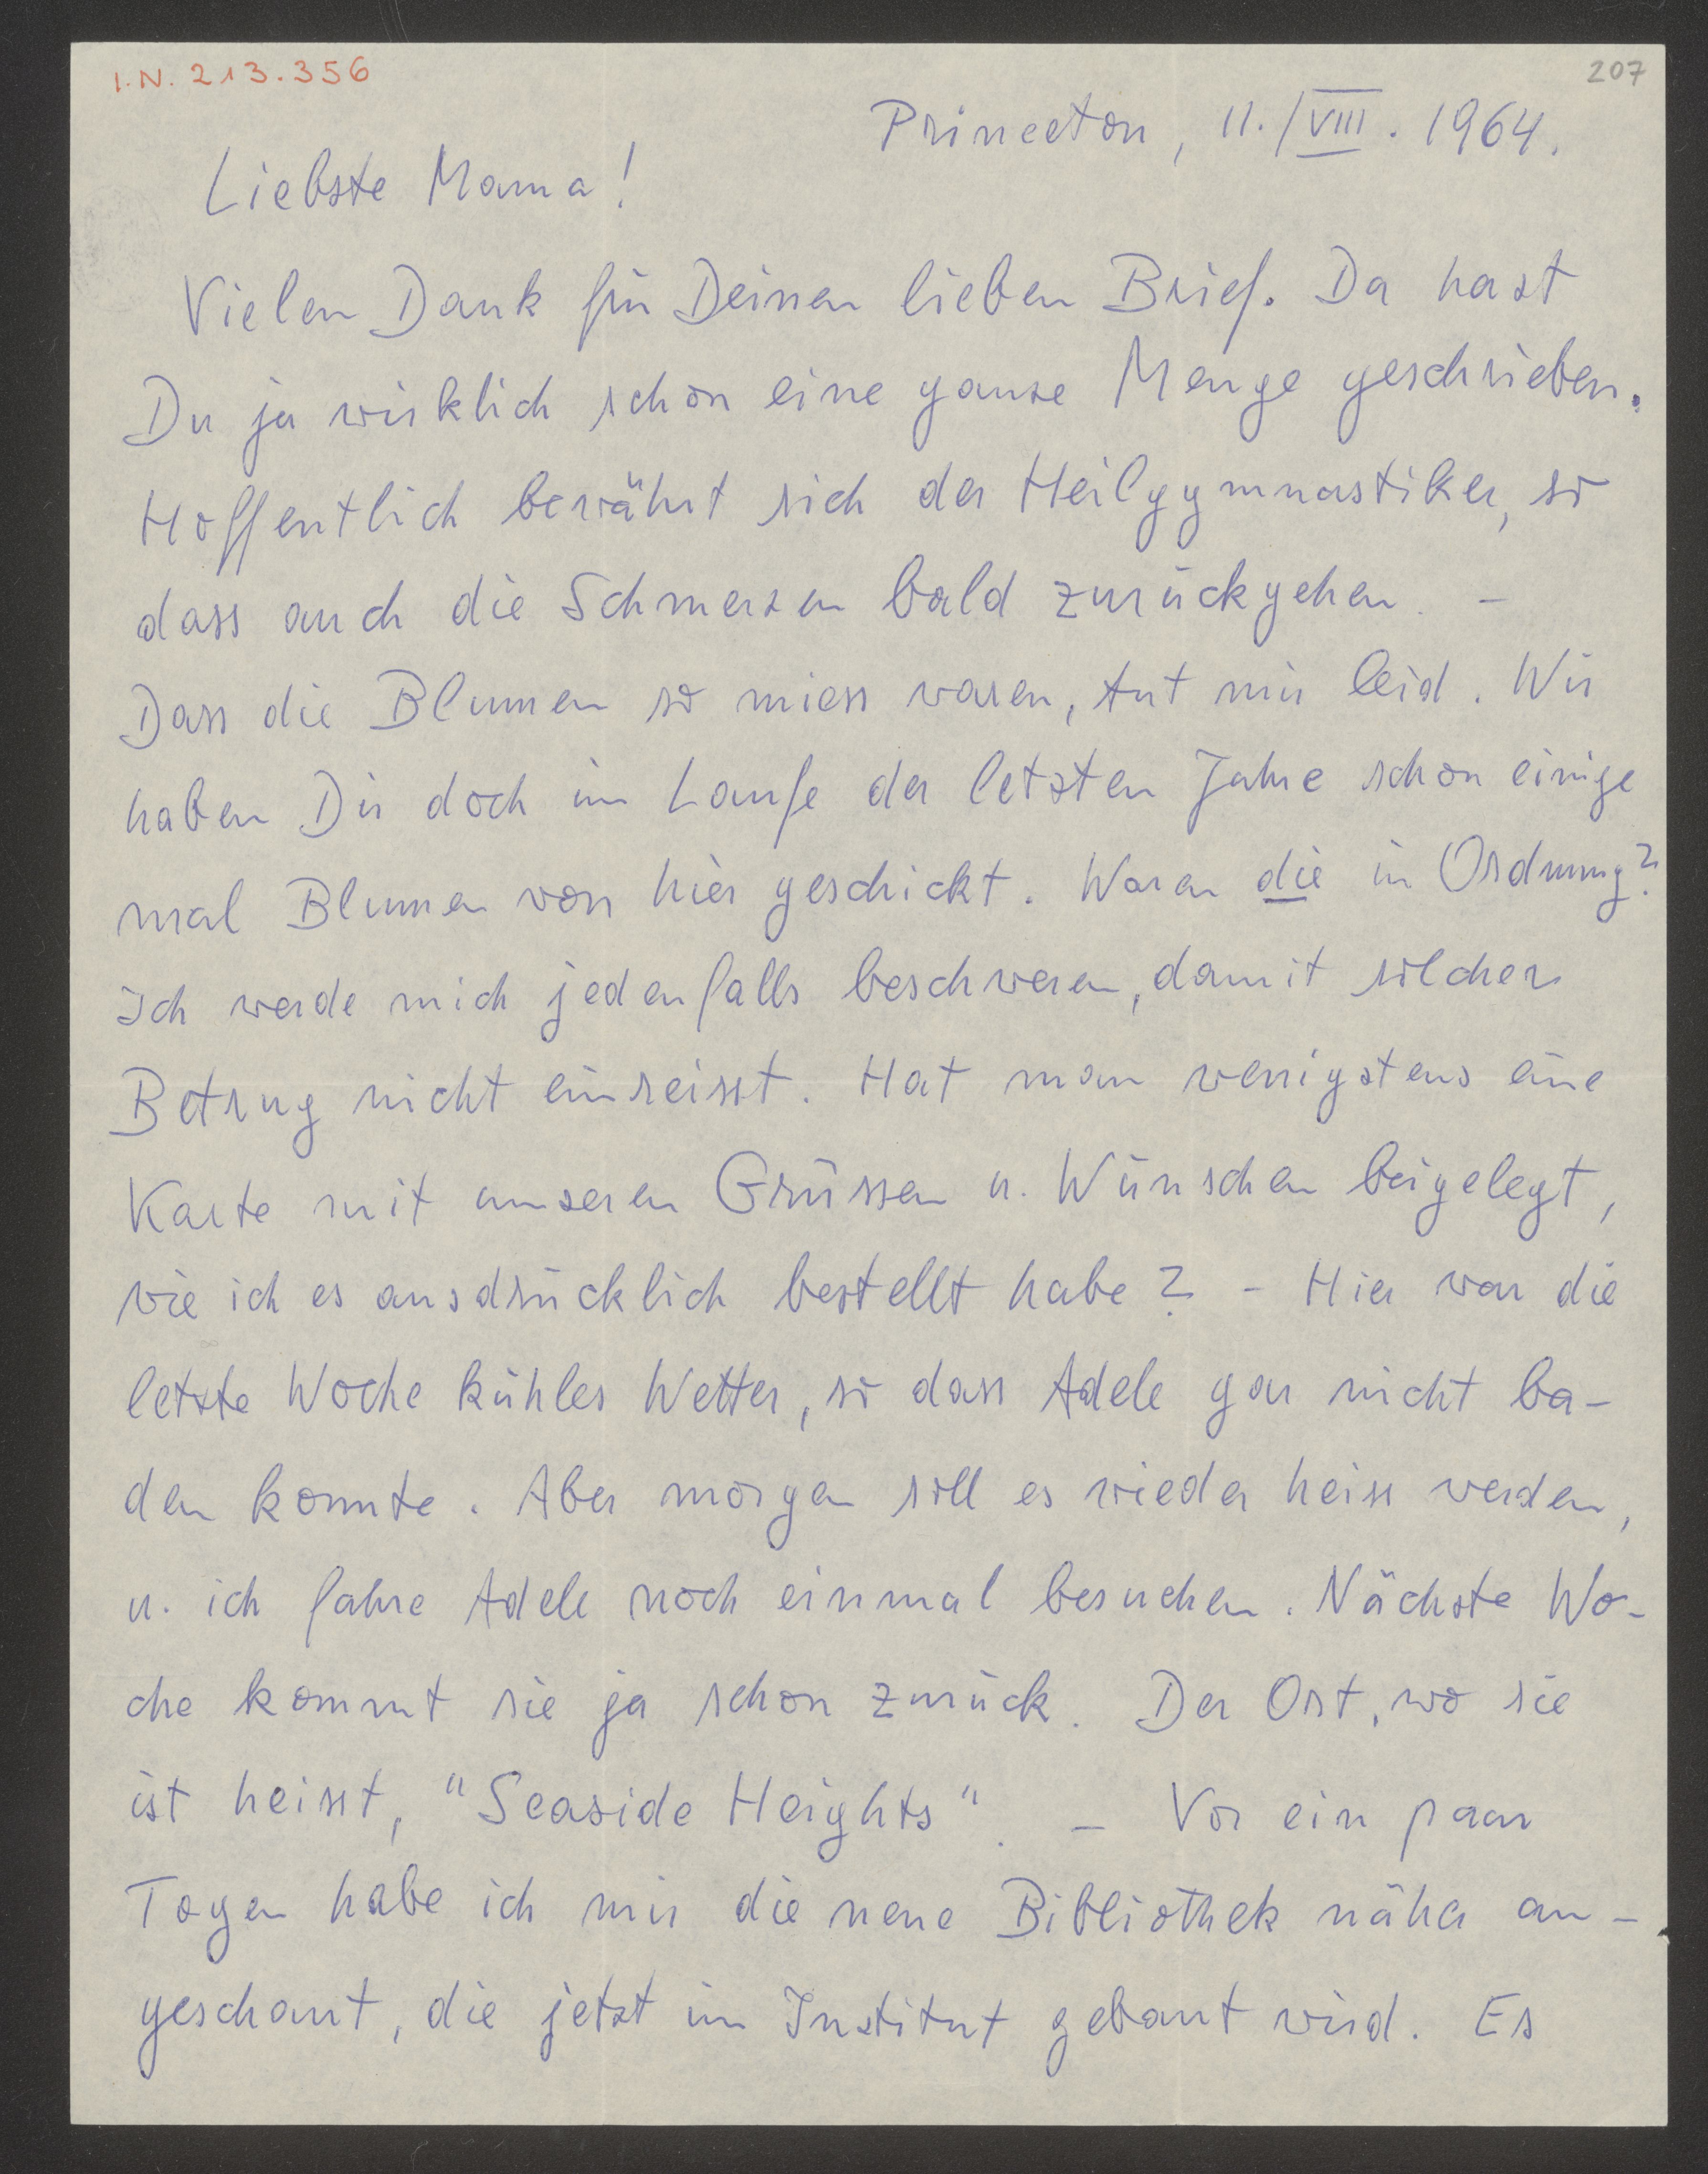 I.N. 213.356
207
Princeton, 11./VIII. 1964.
Liebste Mama!
Vielen Dank für Deinen lieben Brief. Da hast
Du ja wirklich schon eine ganze Menge geschrieben.
Hoffentlich bewährt sich der Heilgymnastiker, so
dass auch die Schmerzen bald zurückgehen. –
Dass die Blumen so miess waren, tut mir leid. Wir
haben Dir doch im Laufe der letzten Jahre schon einige
mal Blumen von hier geschickt. Waren die in Ordnung?
Ich werde mich jedenfalls beschweren, damit solcher
Betrug nicht einreisst. Hat man wenigstens eine
Karte mit unseren Grüssen u. Wünschen beigelegt,
wie ich es ausdrücklich bestellt habe? – Hier war die
letzte Woche kühles Wetter, so dass Adele gar nicht ba-
den konnte. Aber morgen soll es wieder heiss werden,
u. ich fahre Adele noch einmal besuchen. Nächste Wo-
che kommt sie ja schon zurück. Der Ort, wo sie
ist heisst, "Seaside Heights". – Vor ein paar
Tagen habe ich mir die neue Bibliothek näher an-
geschaut, die jetzt im Institut gebaut wird. Es